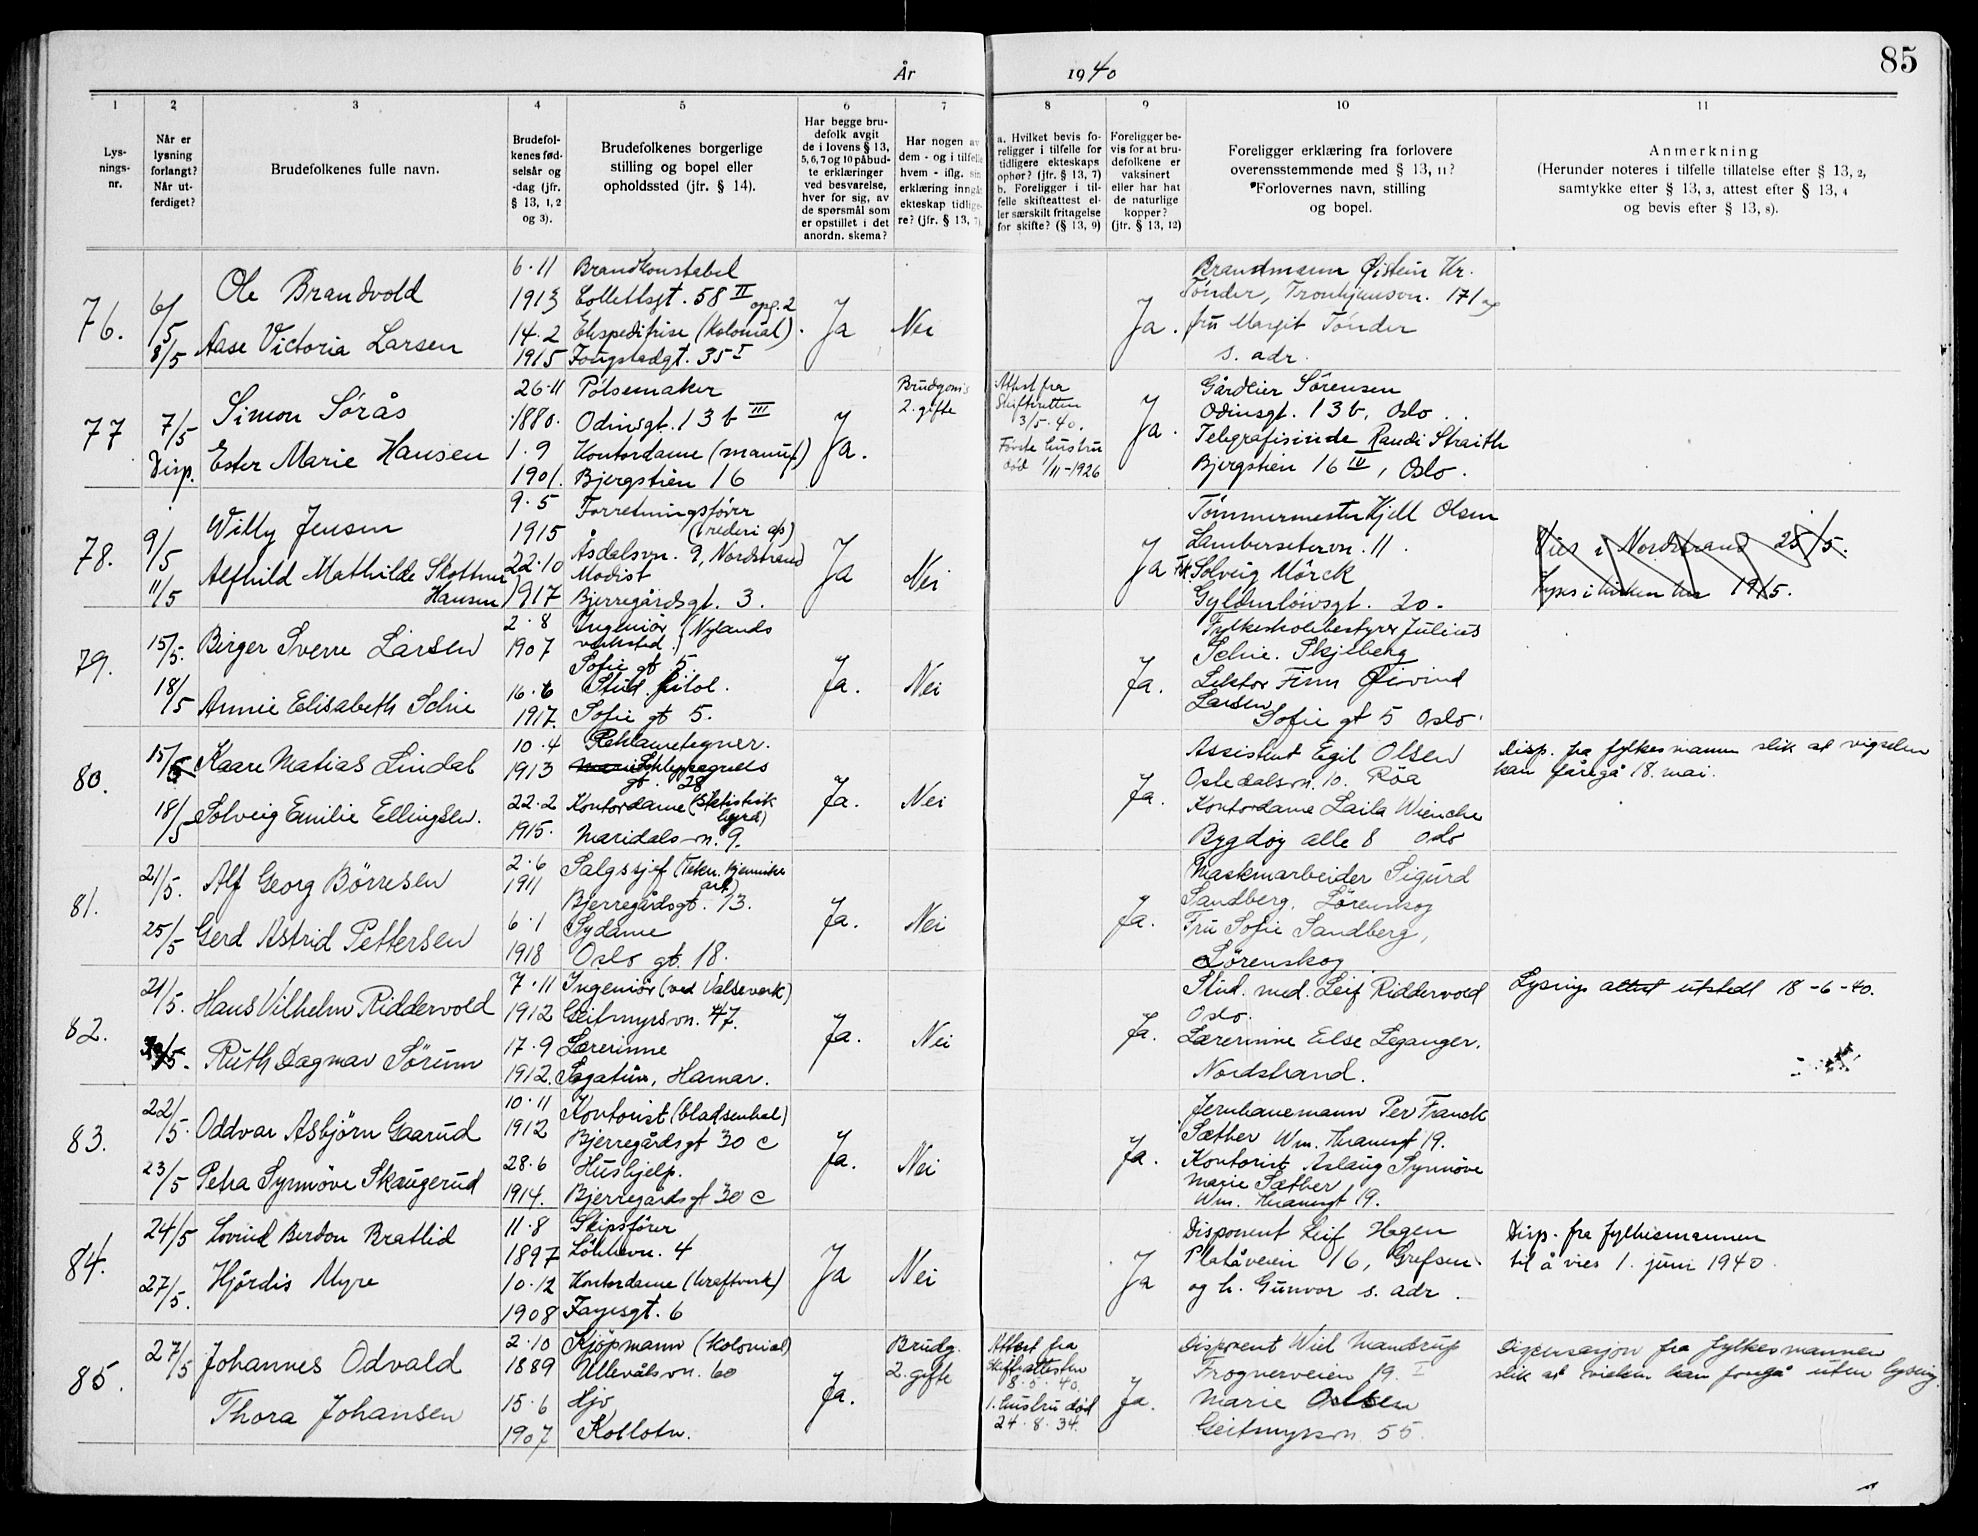 År 1940
85
1
2
3
4
5
6
7
8
9
10
11
Lys-
nings-
nr.
Når er
lysning
forlangt?
Når ut-
ferdiget?
Brudefolkenes fulle navn.
Brudefol-
kenes fød-
selsår og
-dag (jfr.
§ 13, 1, 2
og 3).
Brudefolkenes borgerlige
stilling og bopel eller
opholdssted (jfr. § 14).
Har begge bru-
defolk avgit
de i lovens § 13,
5, 6, 7 og 10 påbud-
te erklæringer
ved besvarelse,
hver for sig, av
de spørsmål som
er opstillet i det
anordn. skema?
Har nogen av
dem - og i tilfelle
hvem - iflg. sin
erklæring inngåt
ekteskap tidlige-
re? (jfr. § 13, 7).
a. Hvilket bevis fo-
religger i tilfelle for
tidligere ekteskaps
ophør? (jfr. § 13, 7)
b. Foreligger i til-
felle skifteattest el-
ler særskilt fritagelse
for skifte? (§ 13, 9)
Foreligger be-
vis for at bru-
defolkene er
vaksinert
eller har hat
de naturlige
kopper?
(jfr. § 13, 12)
Foreligger erklæring fra forlovere
overensstemmende med § 13, 11?
Forlovernes navn, stilling
og bopel.
Anmerkning
(Herunder noteres i tilfelle tillatelse efter § 13, 2,
samtykke etter § 13, 3, attest efter § 13, 4
og bevis efter § 13, 8).
76.
6/5
8/5
Ole Brandvold
Aase Victoria Larsen
6·11
1913
14·2
1915
Brandkonstabel
Collettsgt. 58 II
opg. 2
Ekspeditrise (Kolonial).
Fougstadgt. 35 I
Ja
Nei
Ja.
Brandmann Øistein Kr.
Tönder, Tronhjemsvn. 171 og
fru Margit Tönder
s. adr.
77
7/5
Disp.
Simon Sörås
Ester Marie Hansen
26·11
1880.
1·9
1901.
Pölsemaker
Odinsgt. 13 b III
Kontordame (manuf.)
Bjergstien 16
Ja.
Brudgom
2. gifte
Attest fra
Skifteretten
3/5·40.
Første hustru
död 1/11-1926
Ja.
Gårdeier Sörensen
Odinsgt. 13 b, Oslo.
Telegrafisinde Randi Straith
Bjergstien 16 IV, Oslo.
78.
9/5
11/5
Willy Jensen
Alfhild Mathilde Skottun
Hansen
9·5
1915
22·10
1917
Forretningsfører
(rederi a/s)
Åsdalsvn. 9, Nordstrand
Modist
Bjerregårdsgt. 3.
Ja
Nei
Ja
Tömmermester Kjell Olsen
Lambersetervn. 11.
Frk. Solveig Mörck
Gyldenlöivsgt. 20.
Vies i Nordstrand 25/5.
Lyses i kirken her 19/5.
79.
15/5.
18/5
Birger Sverre Larsen
Annie Elisabeth Schie
2·8
1907
16·6
1917.
Ingeniör (Nylands
verksted.)
Sofie gt 5.
Stud. filol.
Sofie gt 5.
Ja.
Nei
Ja.
Fylkesskolebestyrer Julius
Schie. Skjeberg
Lektor Finn Öivind
Larsen
Sofie gt 5 Oslo.
80.
15/5
18/5
Kaare Matias Lindal
Solveig Emilie Ellingsen.
10·4
1913
22·2
1915.
Reklametegner.
Schleppegrells
gt. 28
Kontordame (Statistisk
byrå)
Maridalsvn. 9.
Ja.
Nei
Ja.
Assistent Egil Olsen
Osledalsvn. 10. Röa
Kontordame Laila Wiencke
Bygdöy alle 8 Oslo
Disp. fra fylkesmannen slik at vigselen
kan foregå 18. mai.
81.
21/5.
25/5
Alf Georg Börresen
Gerd Astrid Pettersen
2·6
1911
6·1
1918
Salgssjef (Tekn. kjemiske
art.)
Bjerregårdsgt. 13.
Sydame
Oslo gt. 18.
Ja.
Nei
Ja.
Maskinarbeider Sigurd
Sandberg, Lörenskog
Fru Sofie Sandberg,
Lörenskog
82.
21/5.
Hans Vilhelm Riddervold
Ruth Dagmar Sörum
7·11
1912
17·9
1912.
Ingeniör (ved Valseverk)
Geitmyrsvn. 47.
Lærerinne
Sagatun, Hamar.
Ja.
Nei
Ja.
Stud. med. Leif Riddervold
Oslo.
Lærerinne Else Leganger.
Nordstrand.
Lysings attest utstedt 18-6-40.
83.
22/5.
23/5
Oddvar Asbjörn Gaarud
Petra Synnöve Skaugerud
10·11
1912
28·6
1914.
Kontorist (bladsentral)
Bjerregårdsgt 30 c
Hushjelp.
Bjerregårdsgt 30 c
Ja.
Nei
Ja.
Jernbanemann Per Franck
Sæther Wm. Thranesgt 19.
Kontorist Aslaug Synnöve
Marie Sæther
Wm. Thranesgt 19.
84.
24/5
27/5.
Berdon Bratlid
Hjördis Myre
11·8
1897
10·12
1908
Skipsförer
Lökkevn. 4
Kontordame (kraftverk)
Fayesgt. 6
Ja
Nei
Ja
Disponent Leif Hagen
Platåveien 16, Grefsen.
og h. Gunvor s. adr.
Disp. fra fylkesmannen
til å vies 1. juni 1940.
85.
27/5
Johannes Odvald
Thora Johansen
2·10
1889
15·6
1907
Kjöpmann (kolonial)
Ullevålsvn. 60
Hjv
Kolbotn.
Ja.
Brudg.
2. gifte
Attest fra
8·5·40.
1. hustru död
24·8·34.
Ja.
Disponent Wiel Mandrup
Frognerveien 19. I
Marie Olsen
Geitmyrsvn 55.
Dispensasjon fra fylkesmannen
slik at vielsen kan foregå uten lysing.